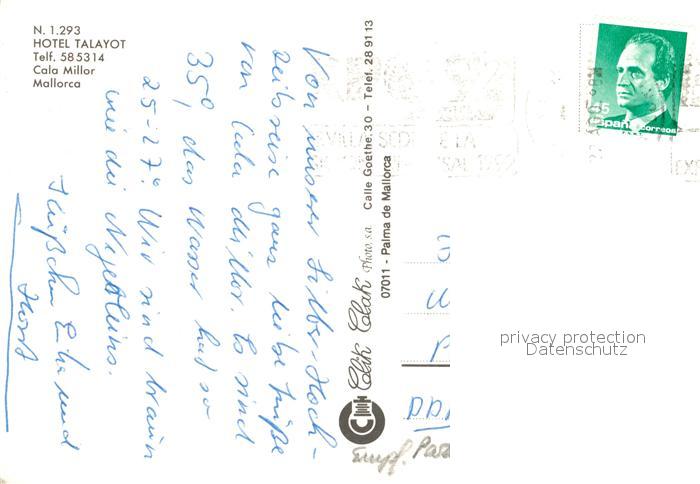 N. 1.293
HOTEL TALAYOT
Telf. 585314
Cala Millor
Mallorca
Von unserer Silber-Hoch-
zeitsreise ganz liebe Grüße
von Cala Millor. Es sind
35°, das Wasser hat so
25-27°. Wir sind braun
wie die Negerleins.
Küßchen und
Horst
Clik Clak Photo s.a. Calle Goethe, 30 - Telef. 28 91 13
07011 - Palma de Mallorca
45
España correos
SEDE
1992
EX
DD
Empf.
privacy protection
Datenschutz